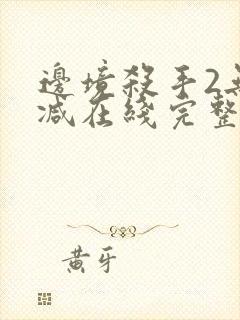 邊境殺手2
减在綫完整
黄牙